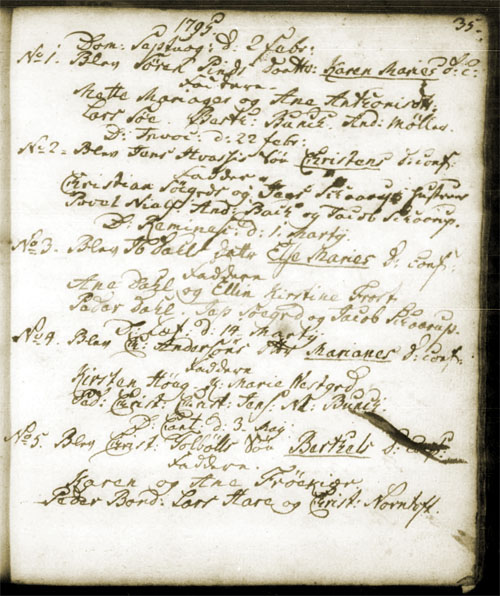 1795
35.
Dom: Septuag: d: 2 Febr:
No 1. Blev Søren Pinds Daatter Karen Maries d: c:
Faddere
Mette Manager og Ane Antonisdtr:
Lars Søe. Barth: Munch. And: Møller.
D: Invoc: d: 22 Febr:
No 2. Blev Jens Hvass's Søn Christens d: conf:
Faddere
Christian Søegrds og Jens Skaarups Hustruer
Povel Niels: And: Bach og Jacob Skaarup.
D: Reminisc: d: 1 Marty
No 3. Blev Ib Dall Else Maries d: conf:
Faddere
Ane Dahl og Ellin Kirstine Frost
Peder Dahl. Jep Søegrd og Jacob Skaarup.
d: 14 Marty
No 4. Blev And: Marianes d: conf:
Faddere
Kirsten Høag Marie Westgrd
Ped: Christ: Jens: Nl: Bundg:
D: Cant: d: 3 Maj
No 5. Blev Christ: Tolbølls Søn Berthels d: conf:
Faddere.
Karen og Ane Frøekier
Peder Bond: Lars Hare og Christ: Norntoft.